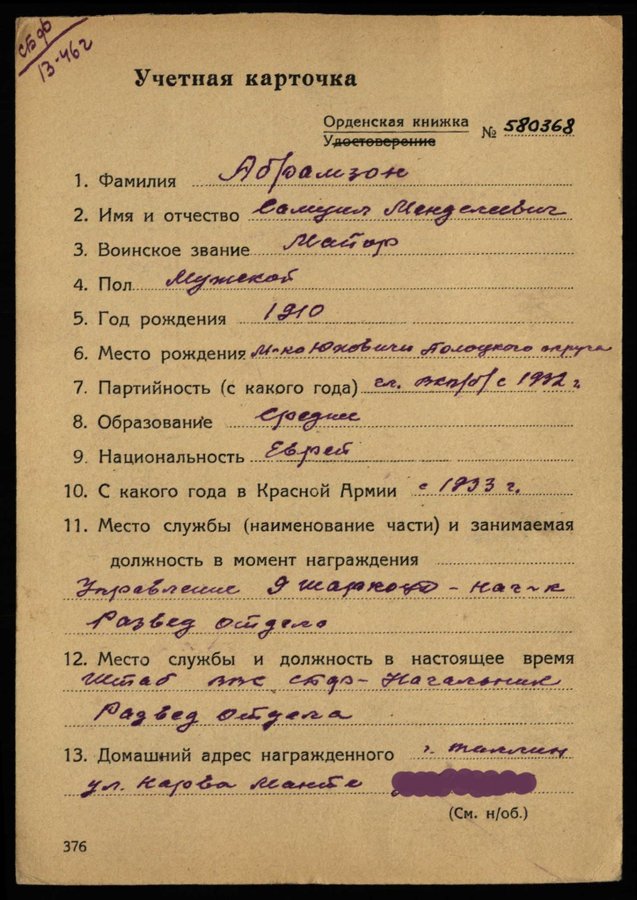 СБФ
13-46г
Учетная карточка
Орденская книжка
Удостоверение № 580368
1. Фамилия Абрамзон
2. Имя и отчество Самуил Менделевич
3. Воинское звание Майор
4. Пол Мужской
5. Год рождения 1910
6. Место рождения М-ко Юховичи Полоцкого округа
7. Партийность (с какого года) чл. ВКП(б) с 1932 г.
8. Образование Среднее
9. Национальность Еврей
10. С какого года в Красной Армии с 1933 г.
11. Место службы (наименование части) и занимаемая
должность в момент награждения
Управление 9 - нач-к
Развед отдела
12. Место службы и должность в настоящее время
Штаб ВВС СБФ - Начальник
Развед отдела
13. Домашний адрес награжденного г. Таллин
ул. Нарва Манте
(См. н/об.)
376